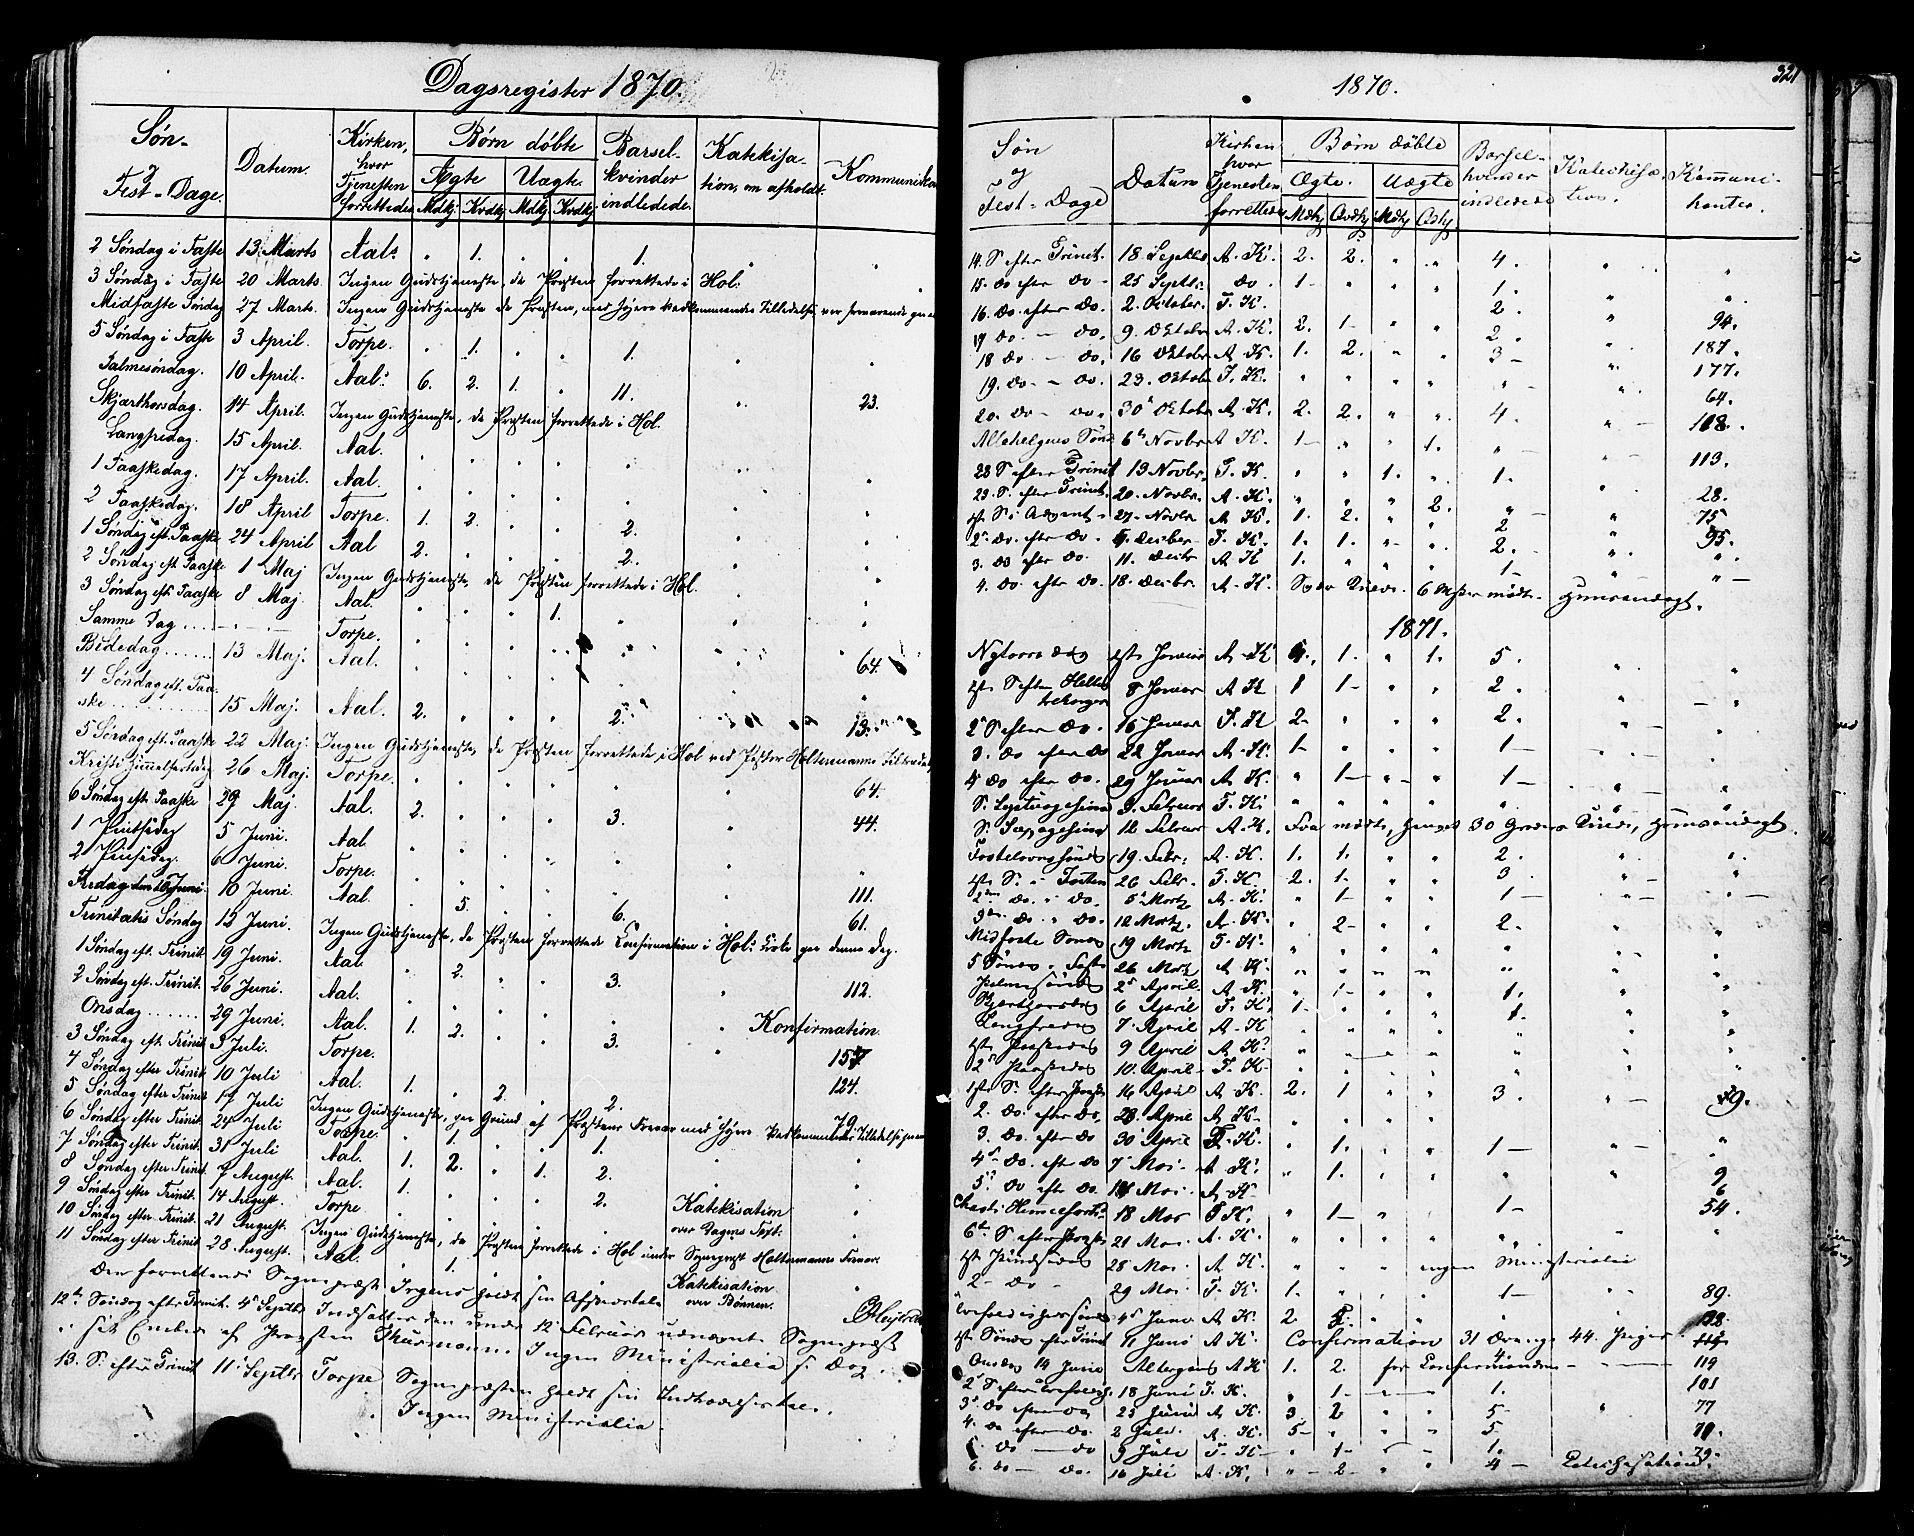 Dagsregister 1870.
Søn- og Fest-Dage. Datum. Kirken, hvor Tjenesten forrettedes Børn døbte Barselkvinder indledede. Katekisation, om afholdt.
Ægte Uægte.
Mdkj. Kvdkj. Mdkj. Kvdkj.
2 Søndag i Faste 13 Marts Aal: " 1. " " 1. "
3 Søndag i Faste 20 Marts. Ingen Gudstjeneste, da Præsten forrettede i Hol: "
Midfaste Søndag 27 Marts. Ingen Gudstjeneste da Præsten, med høiere Vedkommendes Tilladelse, var fraværende
5 Søndag i Faste 3 April. Torpe. " 1. " " 1. " "
Palmesøndag. 10 April. Aal: 6. 2. 1. " 11. " 23.
Skjærthorsdag. 14 April. Ingen Gudstjeneste, da Præsten forrettede i Hol.
Langfredag. 15 April. Aal. " " " " " " "
1 Paaskedag. 17 April. Aal. " " " " " " "
2 Paaskedag. 18 April Torpe. 1. 2. " " 2. " "
1 Søndag eft. Paaske 24 April Aal 2. " " " 2. " "
2 Søndag eft Paaske 1 Maj Ingen Gudstjeneste, da Præsten forrettede i Hol.
3 Søndag eft. Paaske 8 Maj. Aal. " " " 1. " " "
Samme Dag .... Torpe. " " " " " " "
Bededag ...... 13 Maj. Aal. " " " " " " 64.
4 Søndag eft. Paa-
ske ........... 15 Maj. Aal. 2. " " " 2. " 13.
5 Søndag eft. Paaske 22 Maj. Ingen Gudstjeneste, da Præsten forrettede i Hol ved Pastor Holtermanns
Kristi Himmelfartsdag 26 Maj. Torpe. " " " " " " 64.
6 Søndag eft. Paaske 29 Maj. Aal. 2. " " " 3. " 44.
1 Pintsedag 5 Juni. Aal " " " " " " "
2 Pinsedag. 6 Juni. Torpe. " " " " " " "
Fredag den 10 Juni. 10 Juni. Aal. " 5. " " 6. " 111.
Trinitatis Søndag 12 Juni. Ingen Gudstjeneste, da Præsten forrettede Confirmation i Hol: Kirke paa denne Dag. 61.
1 Søndag eft. Trinit. 19 Juni. Aal " 2. " " 3. "
2 Søndag eft. Trinit. 26 Juni. Aal. " " " " " " 112.
Onsdag ....... 29 Juni. Aal. 1. 2. " " 3. " Konfirmation.
3 Søndag eft. Trinit 3 Juli. Torpe. " " " " " " 157
4 Søndag efter Trinit. 10 Juli Aal. 1. " 2. " 2. 124.
5 Søndag efter Trinit 17 Juli Ingen Gudstjeneste, paa Grund af Præstens Fravær med høiere Vedkommendes Tilladelse 79.
6 Søndag efter Trinit. 24 Juli Torpe. " 1. " " 1.
7 Søndag efter Trinit. 31 Juli Aal. 1. 2. " 1. 2. " "
8 Søndag efter Trinit. 7 August. Aal. 1. " " " 2. "
9 Søndag efter Trinit. 14 August. Torpe " " " " " Katekisation over Dagens Text. "
10 Søndag efter Trinit. 21 August. Ingen Gudstjeneste, da Præsten forrettede i Hol under Sogneprest Holtermanns Fravær.
11 Søndag efter Trinit 28 August. Aal " 1. " " " Katekisation over Bønnen.
Den forrettende Sognepræst Irgens holdt sin Afskedstale
12te Søndag efter Trinit. 4de Septbr Indsattes den under 12 Februar udnævnte Sognepræst
til Embedet af Provsten Thurmann. Ingen Ministerialia s. Dag.
13. S. efter Trinit 11 Septbr Torpe Sognepræsten holdt sin Indtrædelsestale.
Ingen Ministerialia.
1870.
321
Søn og Fest-Dage Datum Kirken hvor Tjenesten forrettedes Børn døbte Barselkvinder indledede Katechisation. Kommunikanter.
Ægte. Uægte
14. S efter Trinit. 18 Septbr. A. K. 2. 2. " " 4. " "
15. do efter do 25 Septb: do 1 " " " 1. " "
16. do. efter do. 2. October. T. K. 2. " 94.
17 do. — do. 9. Oktobr A. K. 2. 1 " " 2. 187.
18 do — do. 16 Oktobr A. K. 1. 2. " " 3 " 177.
19. do. — do. 23. Oktobr T. K. " " " " " " 64.
20. do — do. 30 Oktobr A. K. 2. 2. " " 4. " 118.
Allehelgens Sønd 6te Novbr A K. 1 " " 1. " 113.
22 S efter Trinit 13 Novbr. T. K. " " 1. " 1. " 28.
23. S. efter Trinit. 20. Novbr. A. K. " " " 2. " " 75
1ste S. i Advent. 27. Novbr A. K. 1. 2. " " 2 95.
2. do. efter do. 4. Decber T. K. 1. 1. " " 2. " "
3. do efter do. 11. Decbr A K 1. " " " 1 " "
4. do. efter do. 18. Decbr. A. K. Svær Kulde. 6 Msker mødte. Hjemsendagt.
1871.
Nytaarsdag 1ste Januar A. K 4. 1. " 1. 5. " "
1ste S efter Helligtrekonger 8 Januar A K 1 1 " " 2. " "
2 S efter do. 15 Januar T. K 2. " " " 2. " "
3. do efter do 22 Januar A. K. 1 " " " 1 " "
4 do efter do. 29 Januar A. K. " 1 " " 1 " "
S. Septuagesima 5. Februar T. K. " " " " " " "
S. Sexagesima 12 Februar A. K. Faa mødte, henved 30 Graders Kulde, Hjemsendagt
Fastelavns Sønd 19. Febr. A. K. 1. 1. " " 2. " "
1ste S. i Fasten 26 Febr. T. K 2. 1. " " 3 " "
2den do. " do. 5 Marts A. K. " 1 " " 1 " "
3die do. " do 12 Marts. A. K. " 2 " " 2. " "
Midfaste Sønd 19 Marts T. K. " " " " " " "
5 Sønd i Faste 26 Marts A K. " " " " " " "
Palmesønd 2 April. A. K. " 1 " " 1. " "
Skjærthorsdag 6 April T. K. 1 " " " 1. " "
Langfredag 7 April A. K " " " " " " "
1ste Paaskedag 9 April A K. " " " " " " "
2 Paaskedag 10. April T. K " " " " " " "
1ste S. efter Paaske 16 April A K. 2. 1 " " 3. " 19.
2. do. efter do. 23. April A K. " " " " " "
3. do. efter do 30 April T. K. " 1. " " 1 " "
4 do. efter do 7 Mai A K. " 1. " " " " 9
5. do efter do. 14 Mai. A K 6
Christi Himmelfartsd. 18 Mai T K. " 1 " " 1 54.
6te S. efter Paaske 21 Mai A. K. " " " " " " "
1ste Pindsedag 28 Mai A K. " " " ingen Ministerialia
2 — do — 29 Mai T. K. 1. " " " 1 " 89.
Trefoldighedssønd 4 Juni A K. 2 1. " " " 128.
1ste Sønd efter Trinit 11 Juni A K Confirmation 31 Drenge 44. Piger.
Onsdag 14 Juni Altergang A K 1. 2. for Confirmanderne 119
2 S efter Trefoldigh. 18 Juni T. K. " 1 " " 1. 101
3 do efter do 25 Juni A K. 3. 2 " " 5. " 77
4. do efter do. 2 Juli. A. K. 5 " " " 5 70.
5. do — do 9 Juli T. K " 1 " " 1. 29.
6. do — do. 16 Juli A. K. " 2 " " 4 Katechisation.